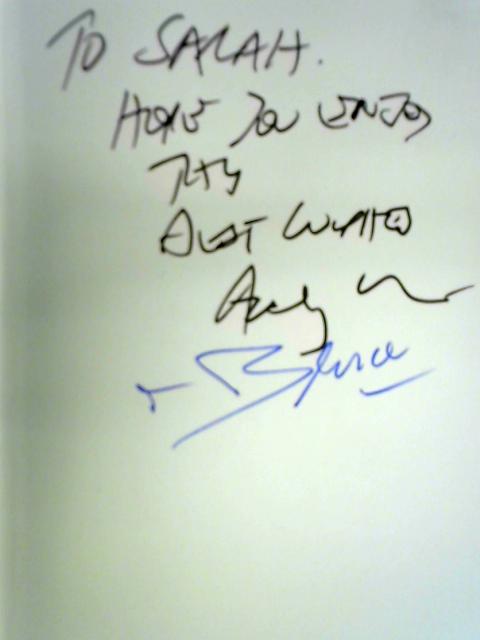 To SARAH.
HOPE YOU ENJOY
THIS
BEST WISHES
Andy
+ Bruce